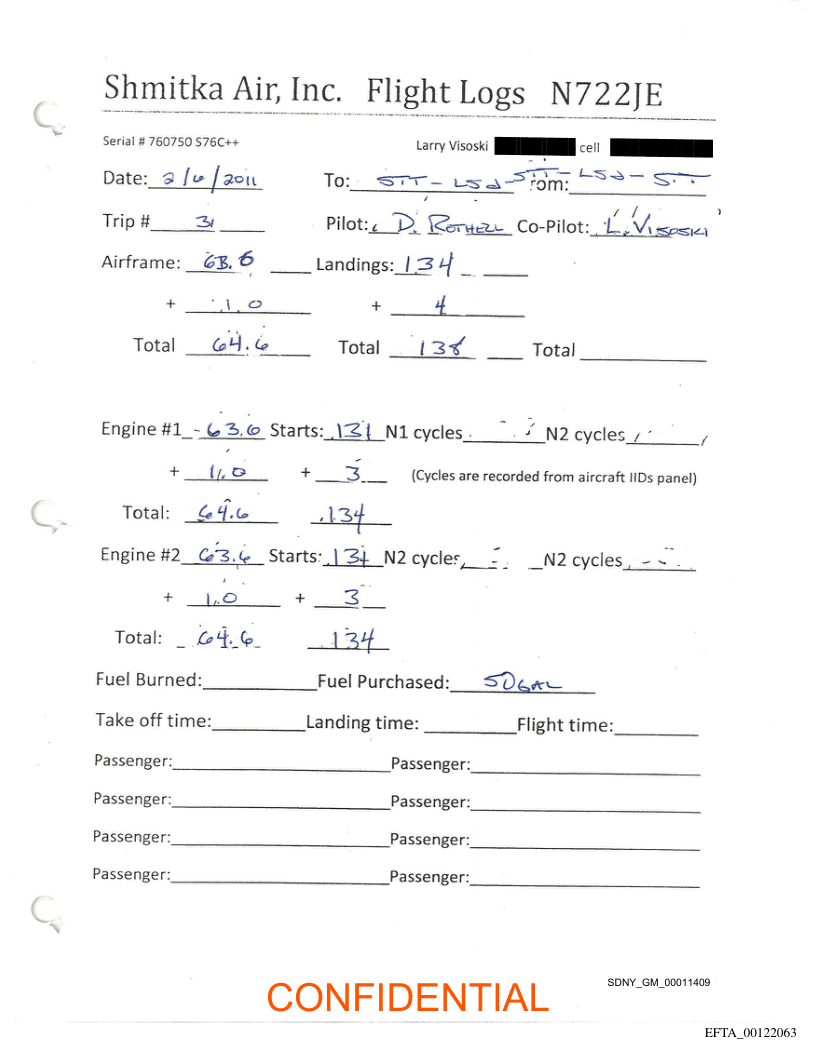 Shmitka Air, Inc. Flight Logs N722JE
Serial # 760750 S76C++ Larry Visoski cell
Date: 2/6/2011 To: STT - LSJ - STT - From: LSJ - STT
Trip # 31 Pilot: D. ROTHELL Co-Pilot: L. VISOSKI
Airframe: 63.6 Landings: 134
+ 1.0 + 4
Total 64.6 Total 138 Total
Engine #1 63.6 Starts: 131 N1 cycles N2 cycles
+ 1.0 + 3 (Cycles are recorded from aircraft IIDs panel)
Total: 64.6 134
Engine #2 63.6 Starts: 131 N2 cycles N2 cycles
+ 1.0 + 3
Total: 64.6 134
Fuel Burned: Fuel Purchased: 50 GAL
Take off time: Landing time: Flight time:
Passenger: Passenger:
Passenger: Passenger:
Passenger: Passenger:
Passenger: Passenger:
SDNY_GM_00011409
CONFIDENTIAL
EFTA_00122063